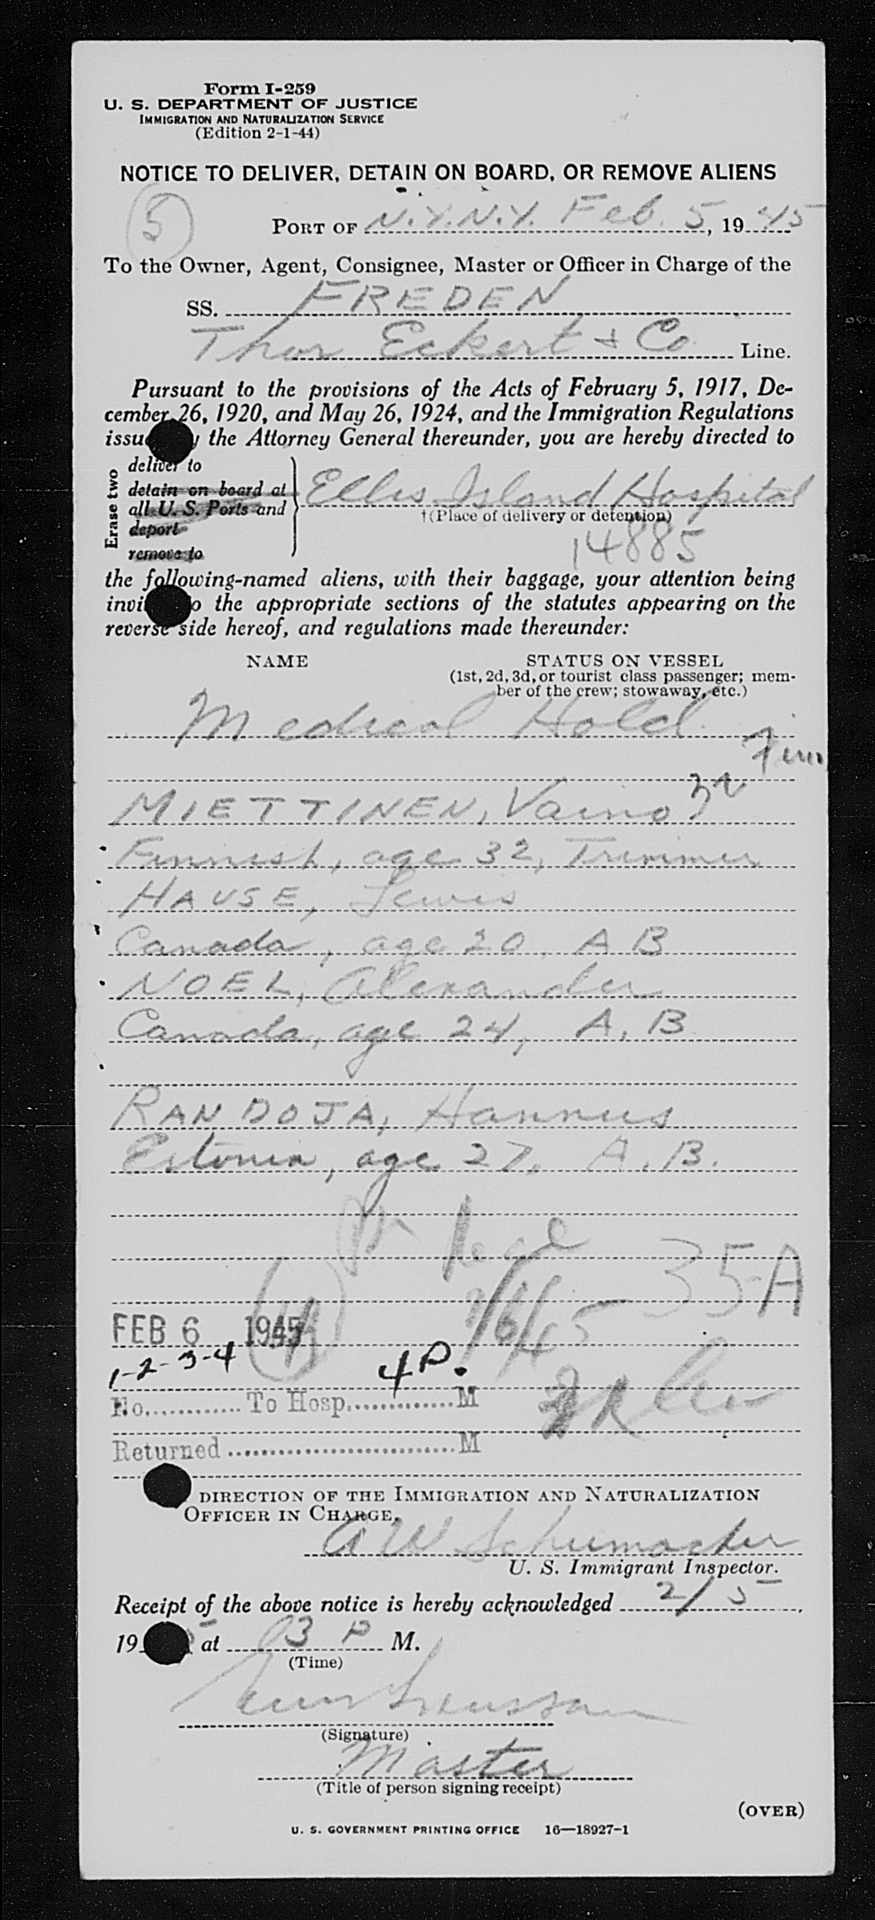 Form I-259
U. S. DEPARTMENT OF JUSTICE
IMMIGRATION AND NATURALIZATION SERVICE
(Edition 2-1-44)
NOTICE TO DELIVER, DETAIN ON BOARD, OR REMOVE ALIENS
5
PORT OF N.Y.N.Y. Feb. 5, 1945
To the Owner, Agent, Consignee, Master or Officer in Charge of the
SS. FREDEN
Thor Eckert & Co. Line.
Pursuant to the provisions of the Acts of February 5, 1917, De-
cember 26, 1920, and May 26, 1924, and the Immigration Regulations
issu y the Attorney General thereunder, you are hereby directed to
Erase two
deliver to
detain on board at
all U. S. Ports and
deport
remove to
Ellis Island Hospital
†(Place of delivery or detention)
14885
the following-named aliens, with their baggage, your attention being
invi o the appropriate sections of the statutes appearing on the
reverse side hereof, and regulations made thereunder:
NAME STATUS ON VESSEL
(1st, 2d, 3d, or tourist class passenger; mem-
ber of the crew; stowaway, etc.)
Medical Hold
Finn
MIETTINEN, Vaino 32
Finnish, age 32, Trimmer
HAUSE, Lewis
Canada, age 20, AB
NOEL, Alexander
Canada, age 24, A.B
RANDOJA, Hannus
Estonia, age 27, A.B.
35-A
2/6/45
FEB 6 1945
1-2-3-4 4P.
No. To Hosp. M
Returned M
DIRECTION OF THE IMMIGRATION AND NATURALIZATION
OFFICER IN CHARGE.
A W Schumacher
U. S. Immigrant Inspector.
Receipt of the above notice is hereby acknowledged 2/5,
19 5 at 3 P M.
(Time)
(Signature)
Master
(Title of person signing receipt)
(OVER)
U. S. GOVERNMENT PRINTING OFFICE 16—18927-1